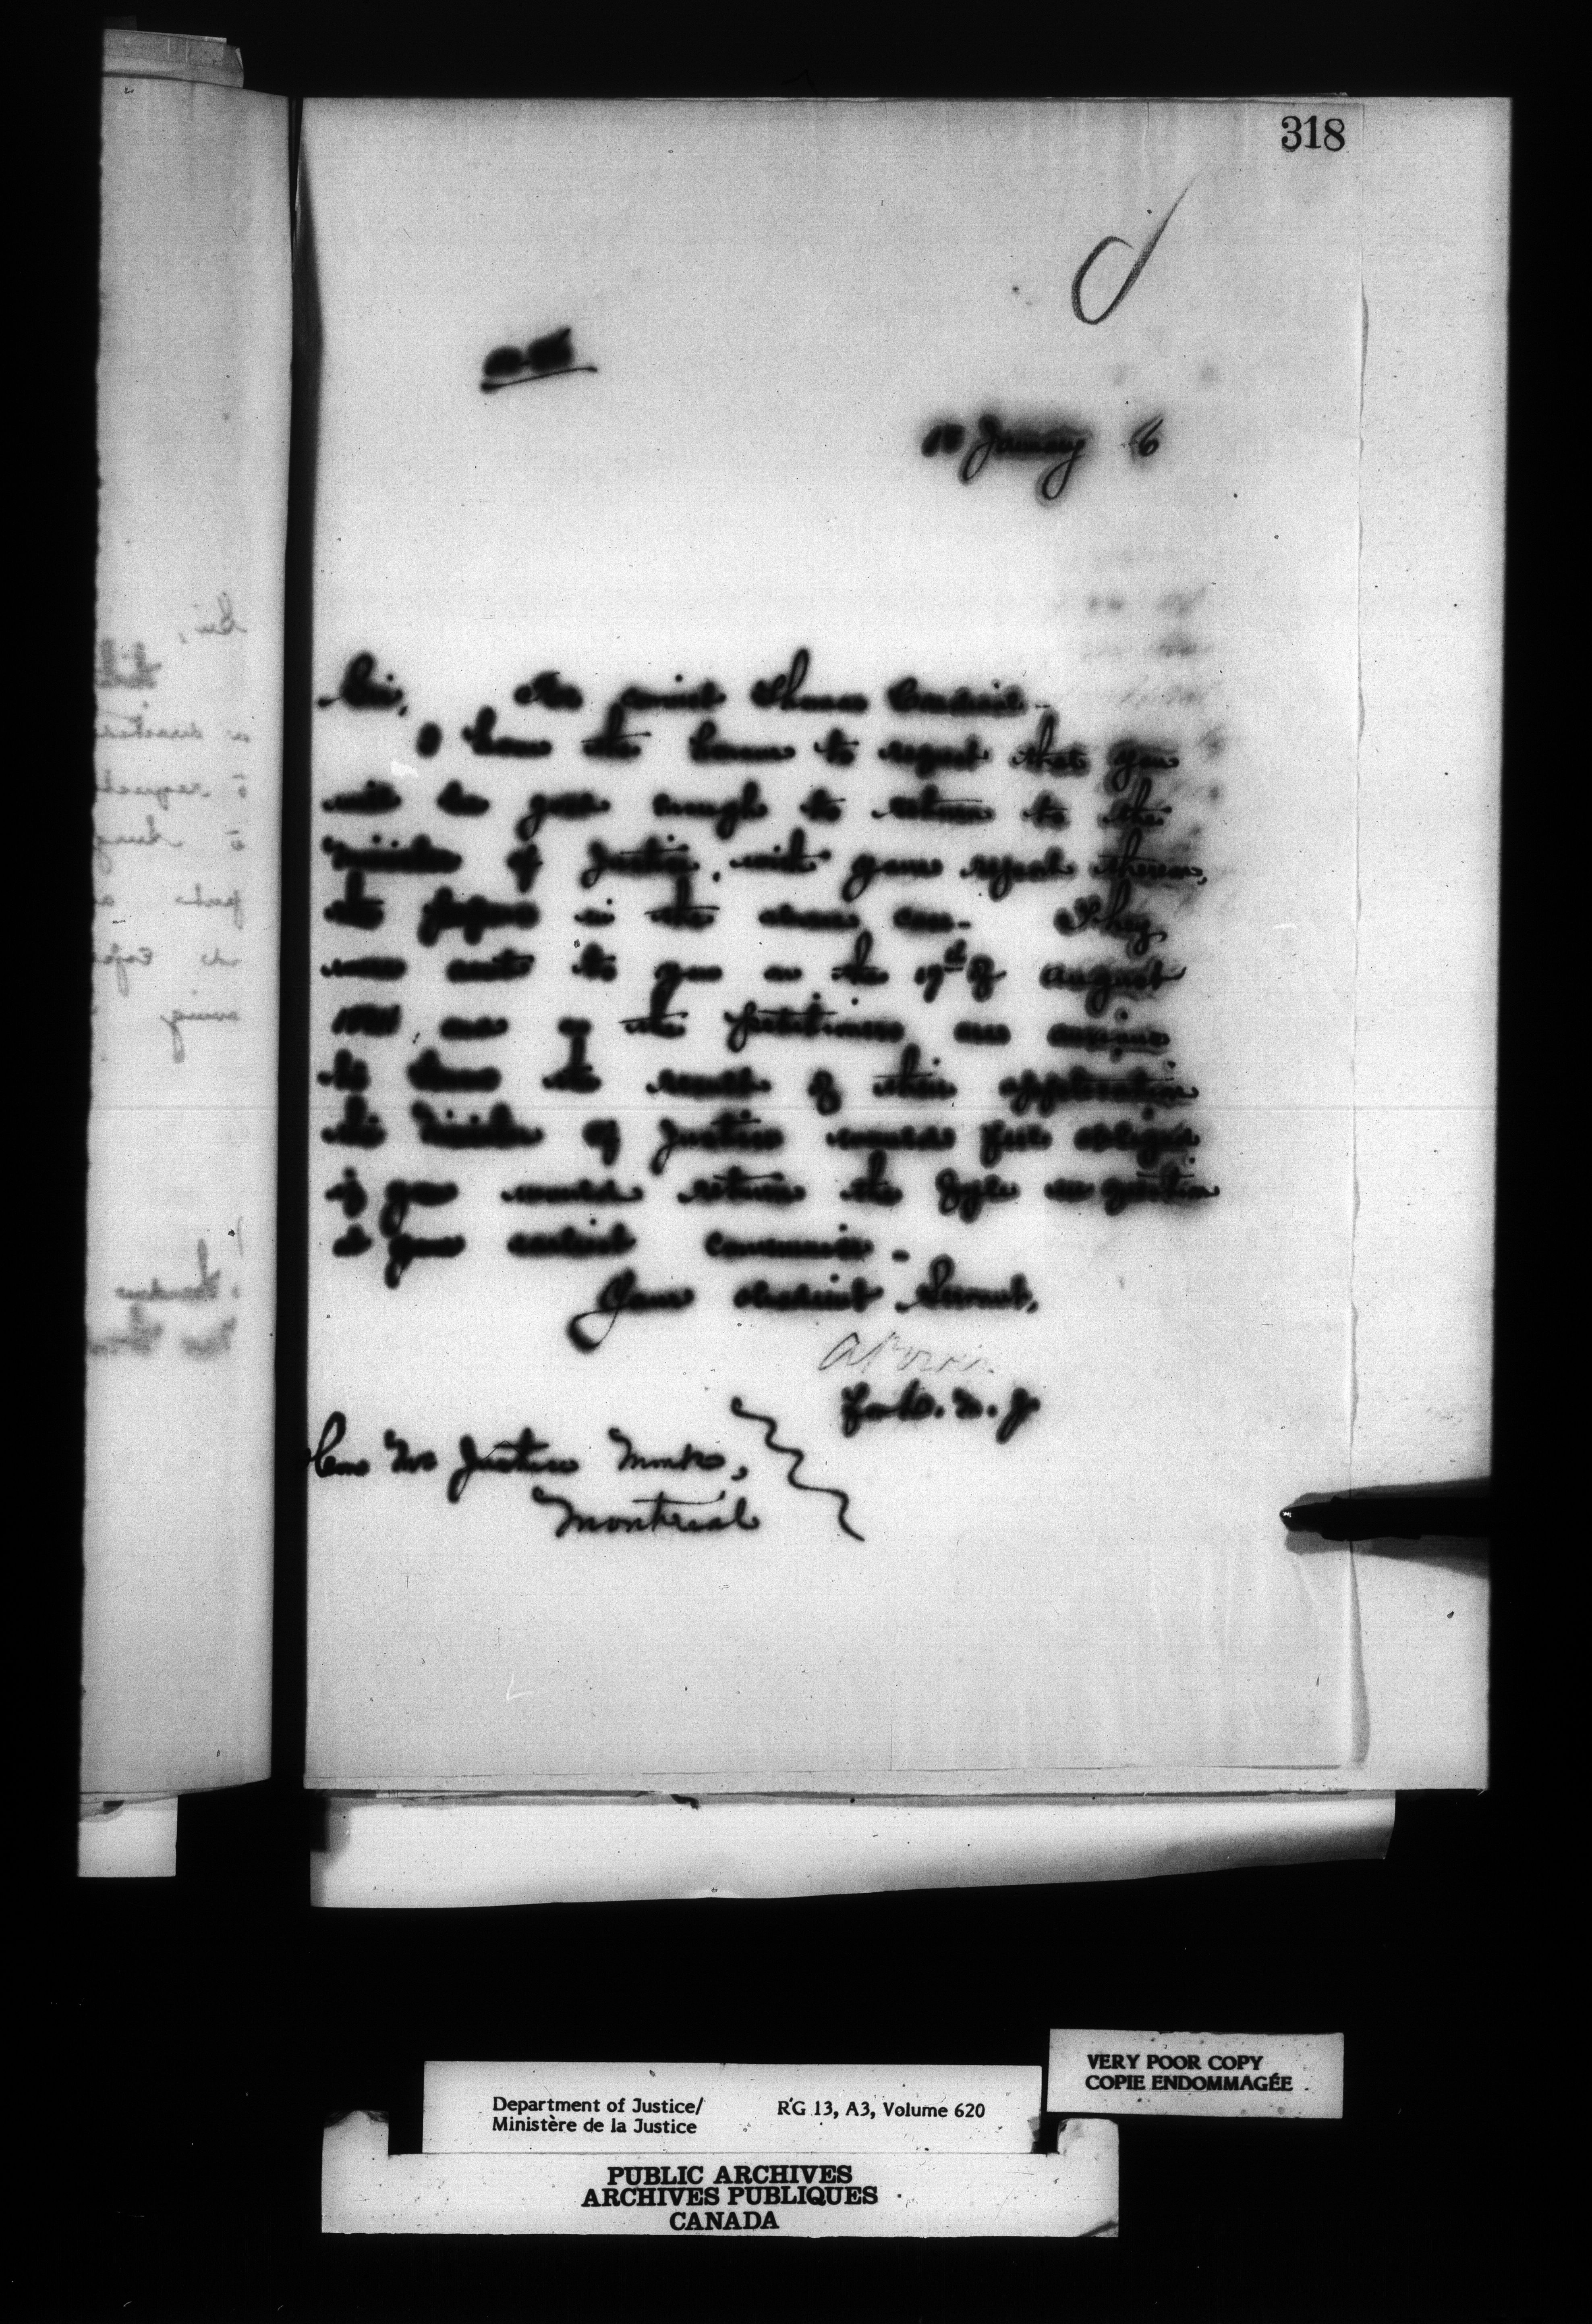 318
January 6
Sir, Re convict Thomas
I have the honour to request that you
will be good enough to return to the
Minister of Justice, with your report thereon,
the papers in the above case. They
were sent to you on the 19th of August
and as the petitioners are anxious
to know the result of their application
the Minister of Justice would feel obliged
if you would return the fyle in question
at your earliest convenience.
Your obedient Servant,
A Power
for D. M. J.
Hon Mr Justice Monk,
Montreal
VERY POOR COPY
COPIE ENDOMMAGÉE
Department of Justice/ RG 13, A3, Volume 620
Ministère de la Justice
PUBLIC ARCHIVES
ARCHIVES PUBLIQUES
CANADA